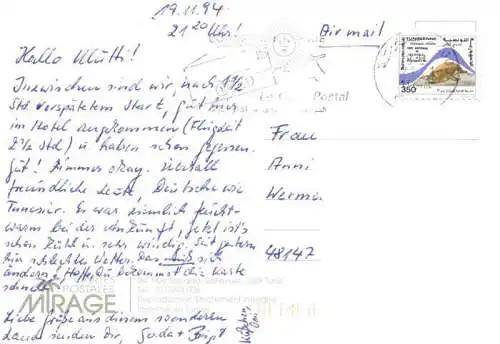 19.11.94
21 20 Uhr!
Air mail
Hallo Mutti!
Inzwischen sind wir, nach 1 1/2
Std verspätetem Start, gut hier
im Hotel angekommen (Flugzeit
2 1/2 Std) u haben schon gegessen.
Gut! Zimmer okay. Überall
freundliche Leute, Deutsche wie
Tunesier. Es war ziemlich feucht-
warm bei der Ankunft, jetzt ist's
schon kühl u. sehr windig. Seit gestern
hier schlechtes Wetter. Das muß sich
ändern! Hoffe, Du bekommst die Karte
schnell.
Liebe Grüße aus diesem
Land senden Dir, +
Frau
Anni
48147
Postal
350
POSTALES
MIRAGE